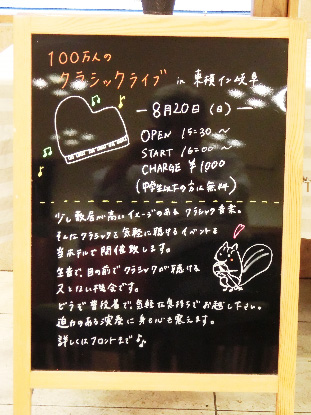 100万人の
クラシックライブ in 東横イン岐阜
ー8月20日(日)ー
OPEN 15:30〜
START 16:00〜
CHARGE ¥1000
(中学生以下の方は無料)
少し敷居が高いイメージのある クラシック音楽。
そんなクラシックを気軽に聴けるイベントを
当ホテルで開催致します。
生音で、目の前でクラシックが聴ける
又とない機会です。
どうぞ普段着で、気軽な気持ちでお越し下さい。
迫力のある演奏に身も心も震えます。
詳しくはフロントまで♪♪